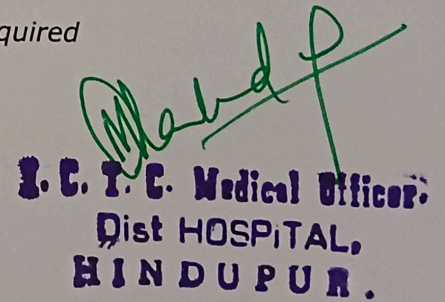 quired
I. C. T. C. Medical Officer.
Dist HOSPiTAL,
HINDUPUR.